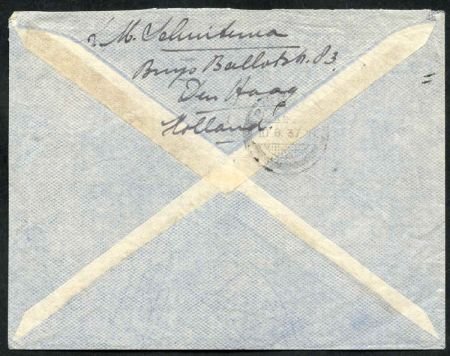 M. Schuitema
Buys Ballotstr. 83
Den Haag
Holland